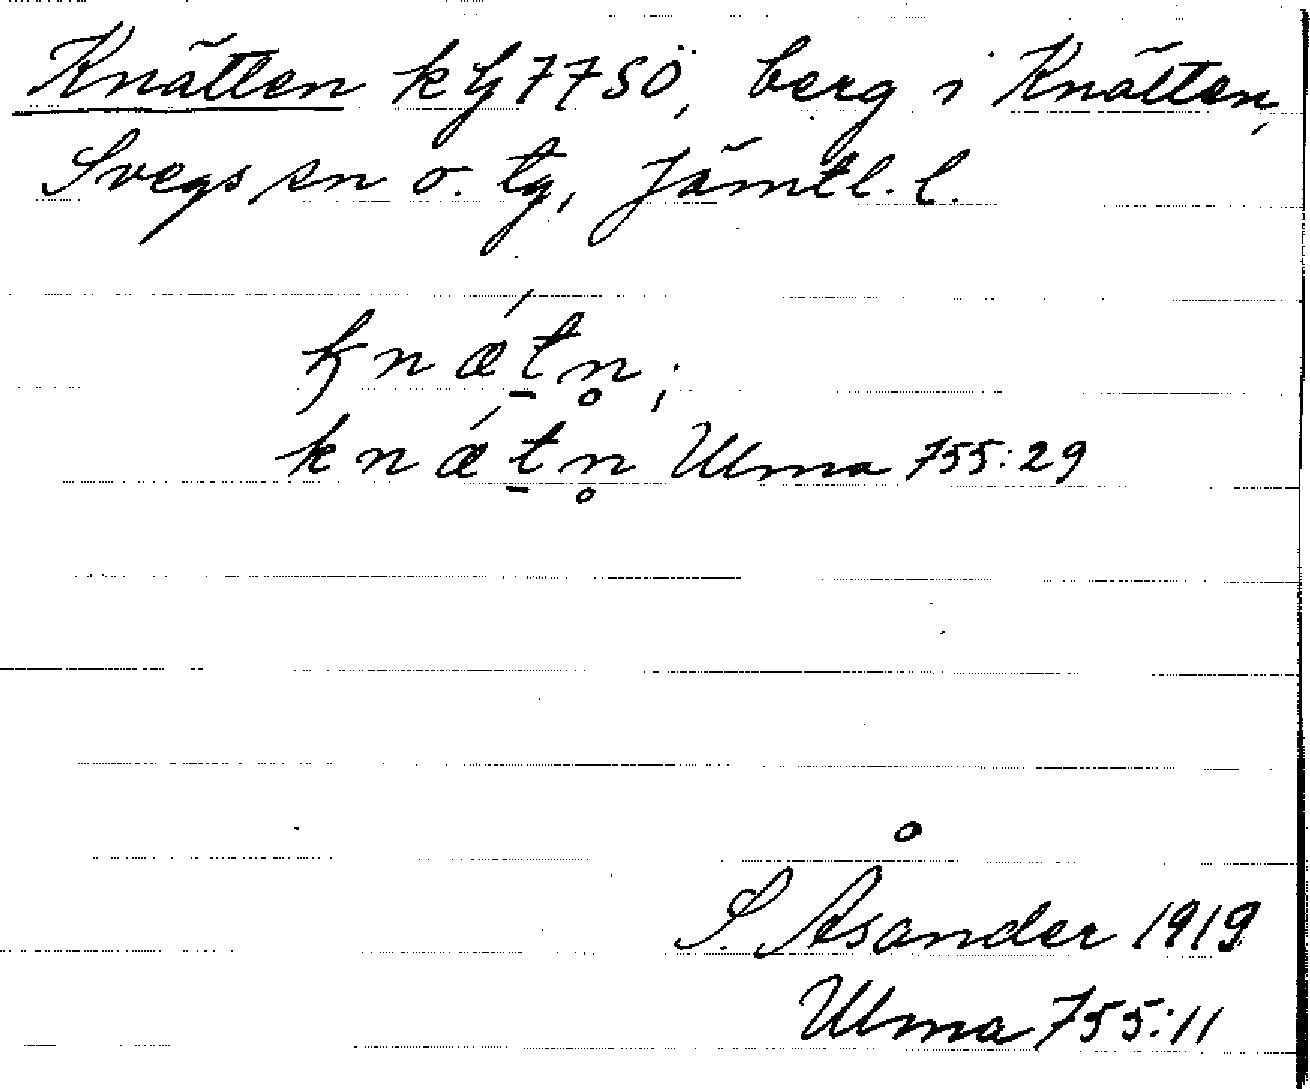 Knätten kfj 77SÖ, berg i Knätten,
Svegs sn o. tg, Jämtl. l.
knǽt̠n̥;
knǽt̠n̥ Ulma 755:29
S. Åsander 1919
Ulma 755:11